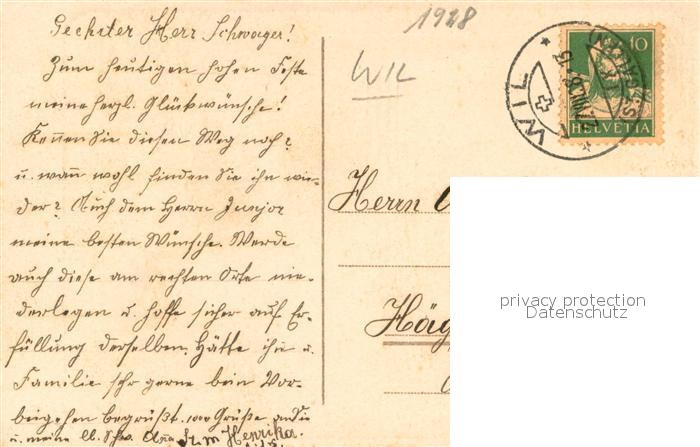 Geehrter Herr Schwager!
Zum heutigen hohen Feste
meine herzl. Glückwünsche!
Kennen Sie diesen Weg noch?
u. wann wohl finden Sie ihn wie-
der? Auch dem Herrn Junior
meine besten Wünsche. Werde
auch diese am rechten Orte nie-
derlegen u. hoffe sicher auf Er-
füllung derselben. Hätte ihn u.
Familie sehr gerne beim Vor-
beigehen begrüßt. 1000 Grüße an Sie
u. meine lb. Sr. M. Henrika.
1928
WIL
WIL
10
HELVETIA
Herrn
Häg
privacy protection
Datenschutz